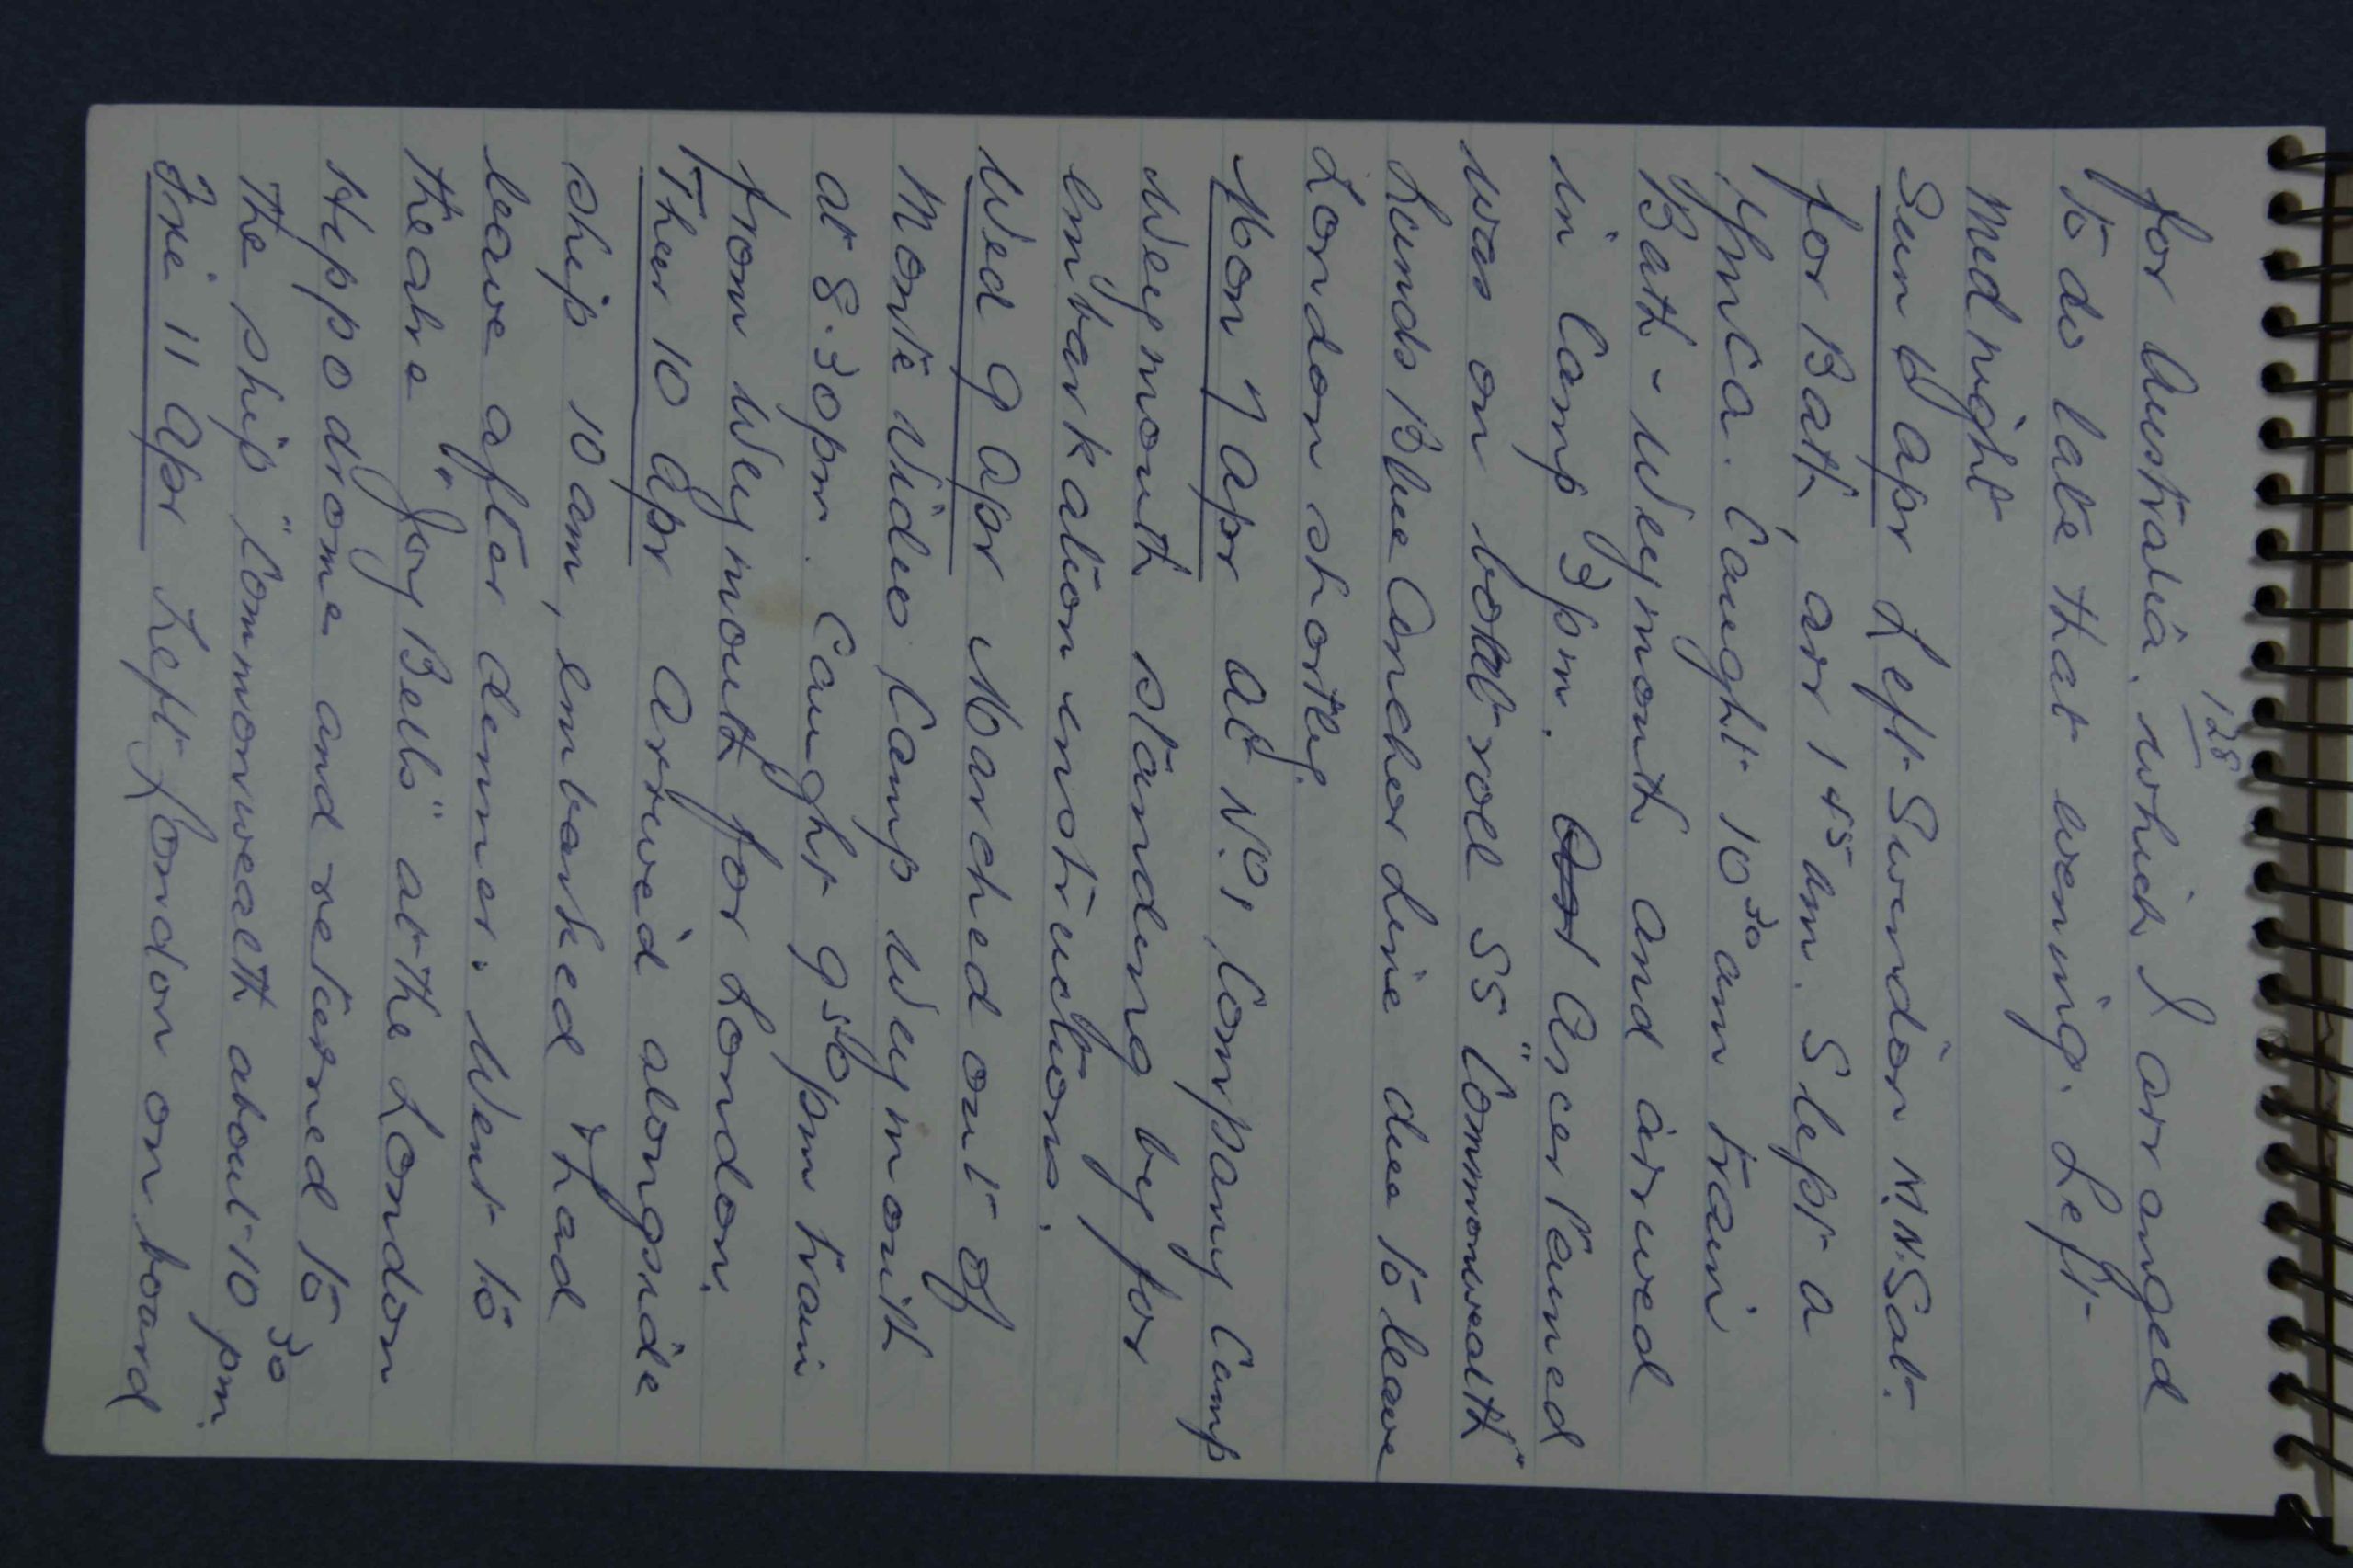 128
for Australia. which I arranged
to do late that evening. Left
Midnight
Sun 6 Apr Left Swindon M.N. Sat.
for Bath, arr 1 45 am. Slept a
Ymca. Caught 10 30 am train
Bath - Weymouth and arrived
in Camp 3 pm. Ascertained
was on boat roll SS "Commonwealth"
Lunds Blue Anchor Line due to leave
London shortly.
Mon 7 Apr At No 1 Company Camp
Weymouth standing by for
embarkation instructions.
Wed 9 Apr Marched out of
Monte Video Camp Weymouth
at 8.30pm. Caught 9 50 pm train
from Weymouth for London.
Thur 10 Apr Arrived alongside
ship 10 am, embarked & had
leave after dinner. Went to
theatre "Joy Bells" at the London
Hippodrome and returned to
the ship "Commonwealth about 10 30 pm.
Fri 11 Apr Left London on board